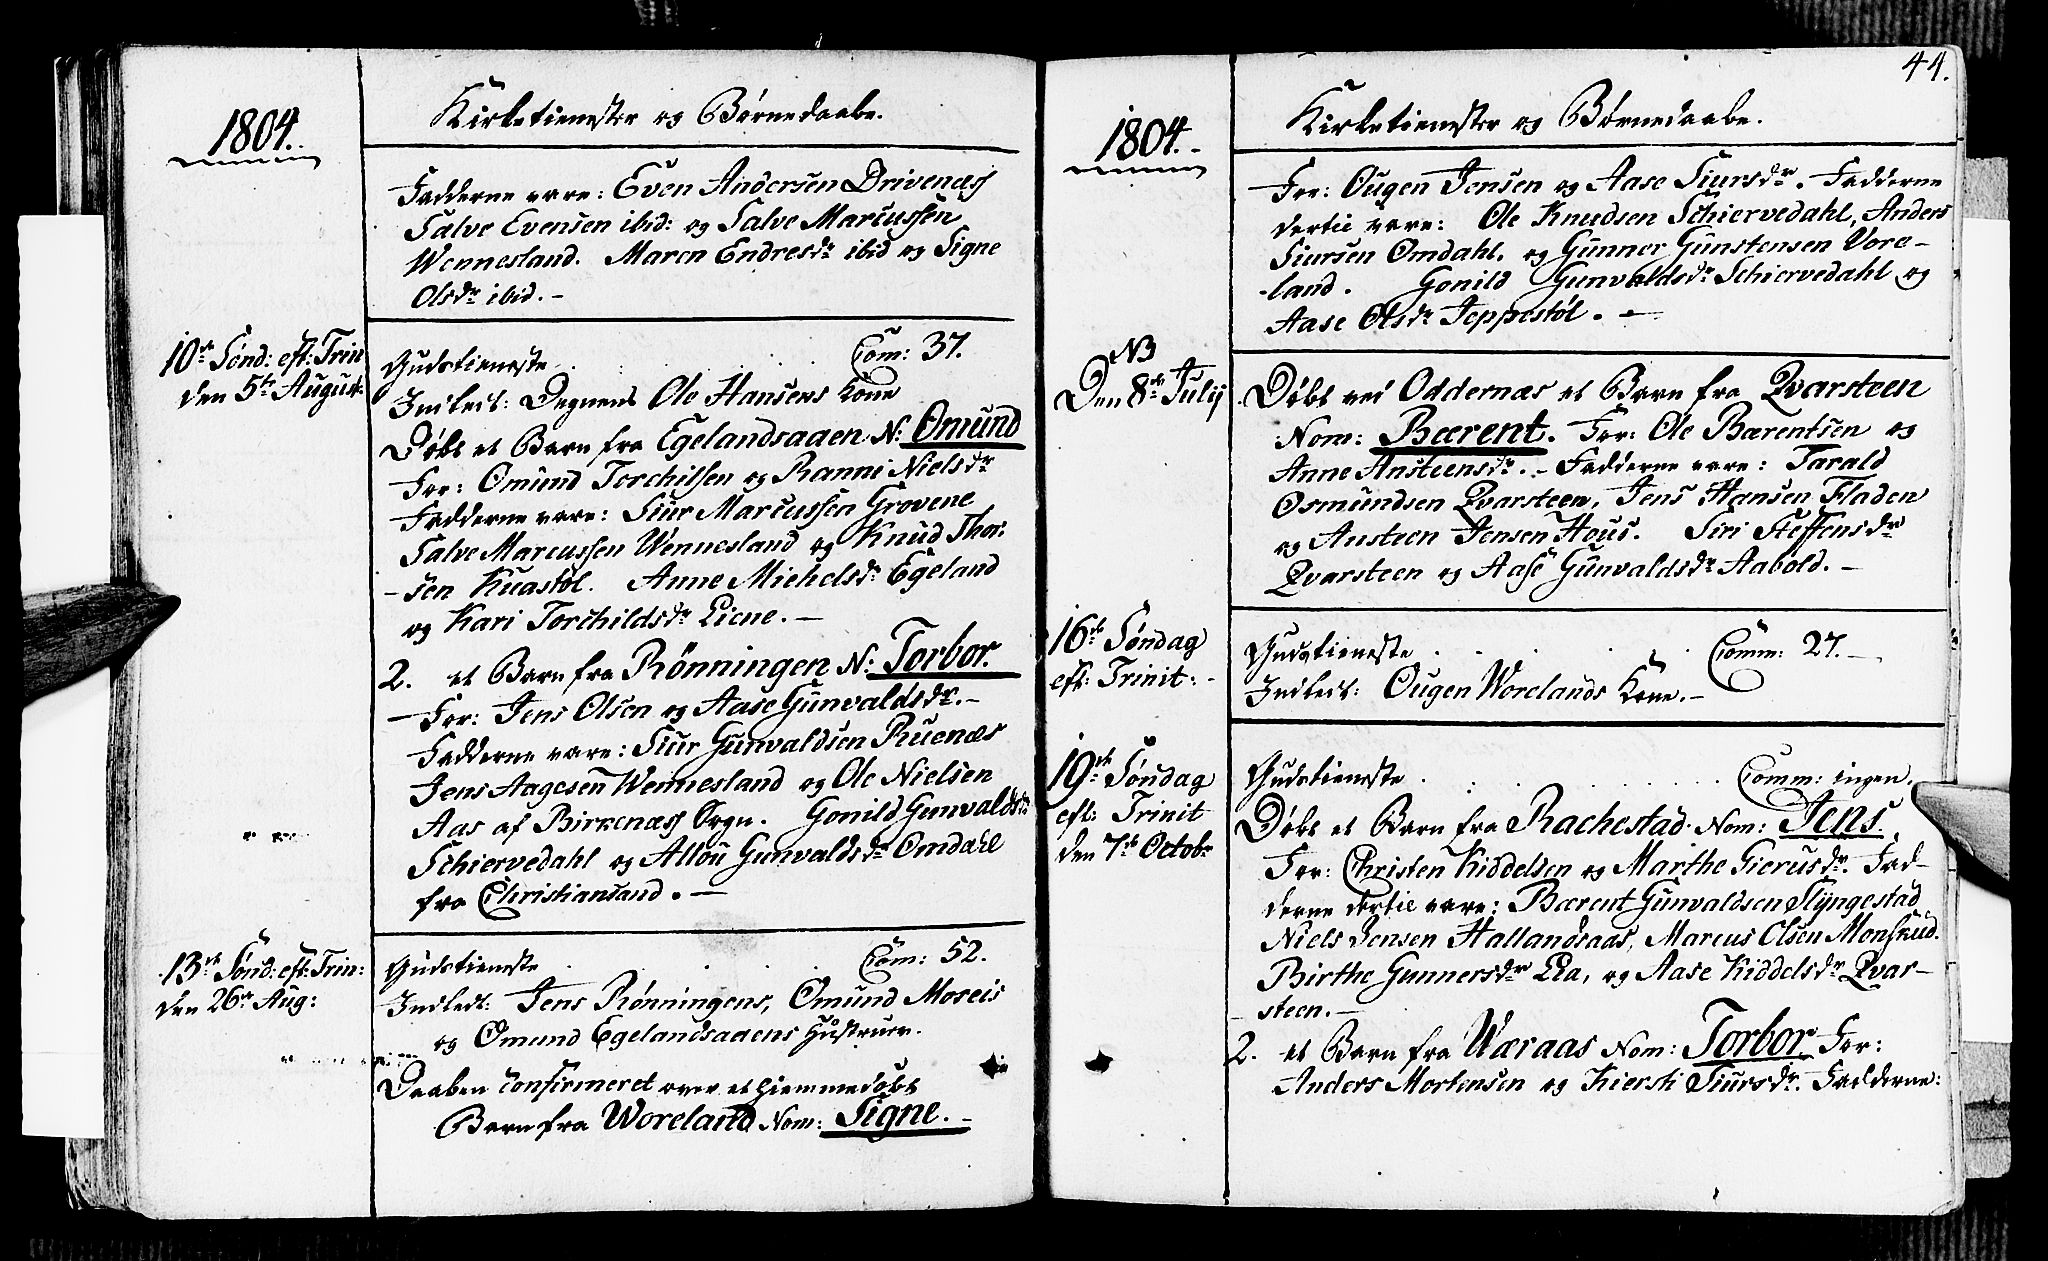 1804.
Kirketienester og Børnedaabe.
Fadderne vare: Even Andersen Drivenæss
Salve Evensen ibid: og Salve Marcussen
Wennesland. Maren Endresdr ibid og Signe
Olsdr ibid. –
10de Sønd: eft: Trin
den 5te August.
Gudstieneste . . . . Com: 37.
Indledt: Degnens Ole Hansens Kone
Døbt et Barn fra Egelandsaaen N: Omund
For: Omund Torchilsen og Ranni Nielsdr
Fadderne vare: Siur Marcussen Grovene
Salve Marcussen Wennesland og Knud Thor:
-sen Kuastøl. Anne Michelsdr Egeland
og Kari Torchildsdr Liene. –
2. et Barn fra Rønningen N: Torbor.
– For: Jens Olsen og Aase Gunvaldsdr. –
Fadderne vare: Siur Gunvaldsen Ruenæs
Jens Aagesen Wennesland og Ole Nielsen
Aas af Birkenæss Sogn. Gonild Gunvaldsdr
Schiervedahl og Allou Gunvaldsdr Omdahl
fra Christiansand. –
13de Sønd: eft: Trin:
den 26de Aug:
Gudstieneste . . . . Com: 52.
Indledt: Jens Rønningens, Omund Moseis
og Omund Egelandsaaens Hustruer.
Daaben confirmeret over et hiemmedøbt
Barn fra Woreland Nom: Signe. –
44.
1804.
Kirketienester og Børnedaabe.
For: Ougen Jensen og Aase Siursdr. Fadderne
dertil vare: Ole Knudsen Schiervedahl, Anders
Siursen Omdahl. og Gunner Gunstensen Vore-
-land. Gonild Gunvaldsdr Schiervedahl og
Aase Olsdr Jeppestøl. –
NB
Den 8de Julij
Døbt ved Oddernæs et Barn fra Qvarsteen
Nom: Bærent. For: Ole Bærentsen og
Anne Ansteensdr. – Fadderne vare: Tarald
Osmundsen Qvarsteen, Jens Hansen Fladen
og Ansteen Jensen Hous. Siri Steffensdr
Qvarsteen og Aase Gunvaldsdr Aabold. –
16de Søndag
eft: Trinit: -
Gudstieneste . . . . . Comm: 27. –
Indledt: Ougen Worelands Kone. –
19de Søndag
eft: Trinit
den 7de Octobr
Gudstieneste . . . . . Comm: ingen.
Døbt et Barn fra Rachestad. Nom: Jens.
For: Christen Kiddelsen og Marthe Gierusdr. Fad-
derne dertil vare: Bærent Gunvaldsen Flyngestad
Niels Jensen Hallandsaas, Marcus Olsen Monskud.
Birthe Gunnersdr Lia, og Aase Kiddelsdr Qvar-
- steen. –
2. et Barn fra Væraas Nom: Torbor For:
Anders Mortensen og Kiersti Siursdr. Fadderne: